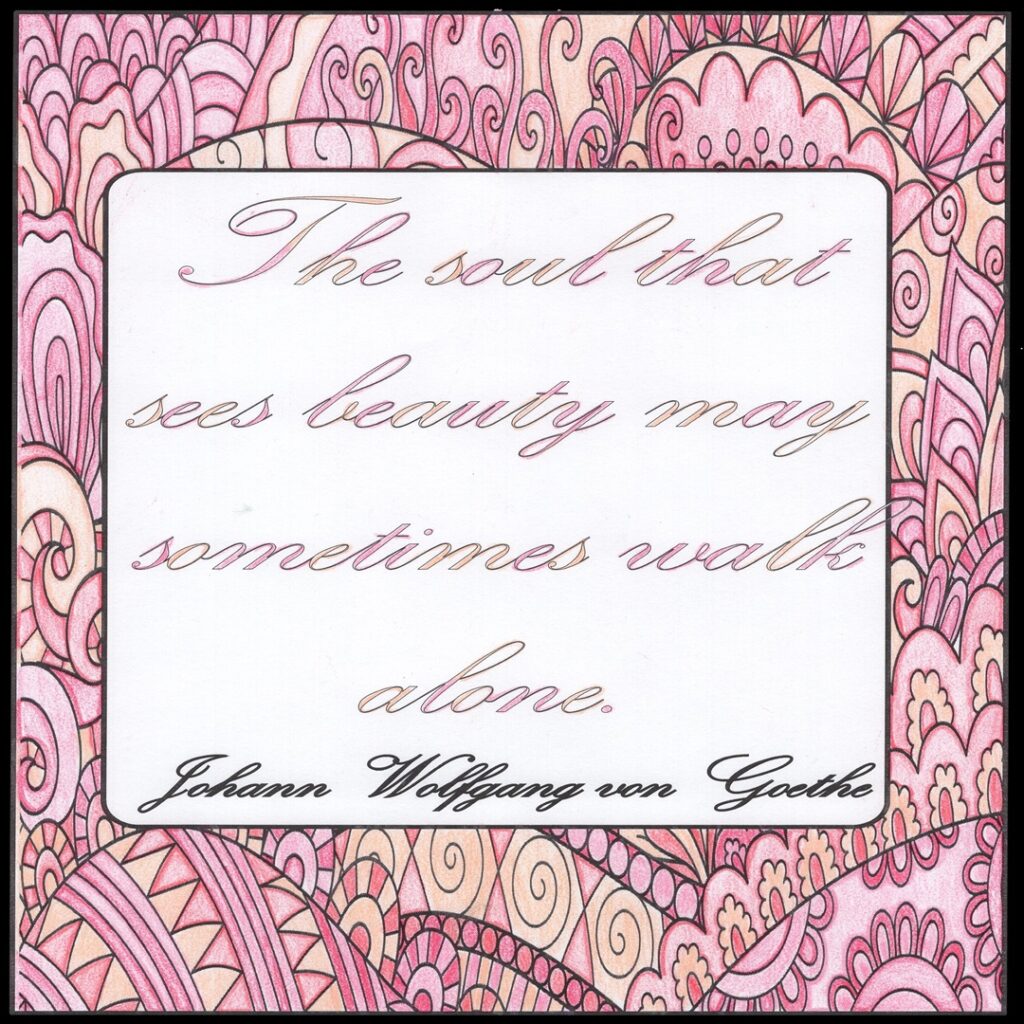 The soul that
sees beauty may
sometimes walk
alone.
Johann Wolfgang von Goethe